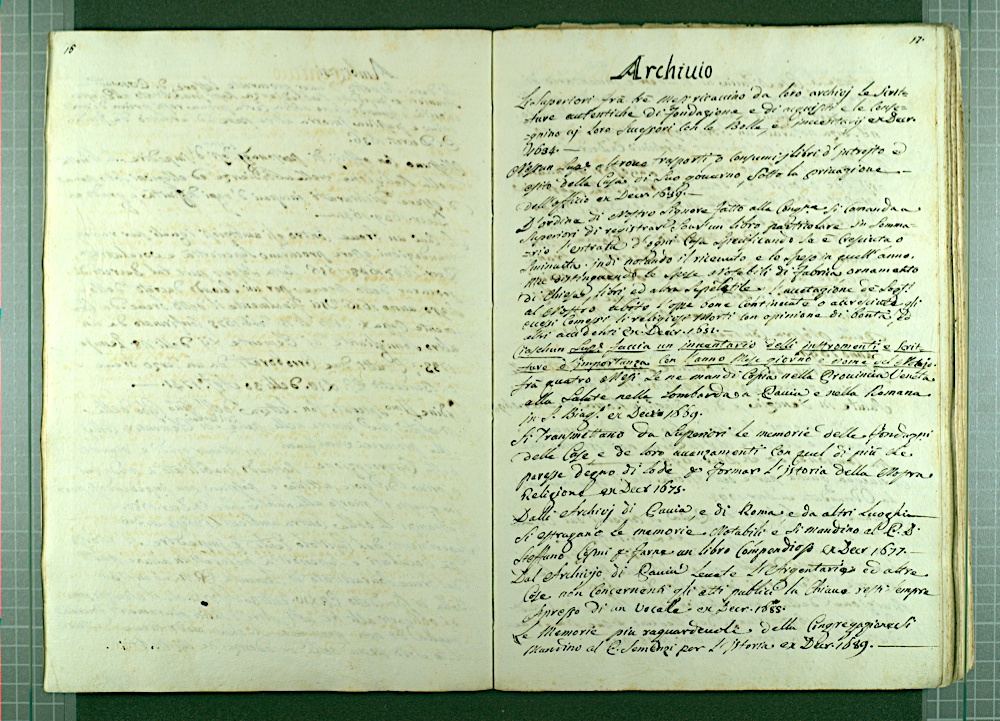 16
17.
Archiuio
Li Superiori frà trè Mesi ricauino da loro archiuj le Scrit-
ture autentiche di fondazione e di acquisti e le conse-
gnino aj loro Successori con le Bolle e inuentarij ex Decr.
1634.
Nessun Supre altroue trasporti o consumi i libri d'introito e
esito della Casa di suo gouerno, sotto la priuazione
dell'officio ex Decr 1639.
D'ordine di Nostro Signore fatto alla Congne si comanda a
Superiori di registrare sour'un libro particolare in somma-
rio l'entrata d'ogni Casa specificando se è cresciuta o
sminuita. indi notando il riceuuto e lo speso in quell'anno.
ma distinguendo le spese Notabili di fabrica ornamento
di Chiesa, libri ed altre
al Nostro offizio l'opre bone continuate o accresciute gli
eccessi comessi li religiosi Morti con opinione di bontà, ed
altri accidenti ex Decr. 1651.
Ciaschun Supre faccia un inuentario delli instromenti e scrit-
ture d'importanza con l'anno Mese giorno e nome del Notaio.
frà quatro Mesi Se ne mandi Copia nella Prouincia Veneta
alla Salute nella Lombarda a Pauia e nella Romana
in S. Biagio ex Decreto 1659.
Si Transmettano da Superiori le memorie delle fondazioni
delle Case e de loro auanzamenti con quel di più che
paresse degno di lode per formar L'Istoria della Nostra
Religione ex Decr 1675.
Dalli Archiuj di Pauia, e di Roma e da altri Luoghi
si estragano le memorie Notabili e si mandino al P. D.
Steffano Cosmi per farne un libro Compendioso ex Decr 1677.
Dal Archiuio di Pauia Leuate L'Argentarie ed altre
Cose non concernenti gli atti publici la Chiaue resti sempre
apresso di un Vocale ex Decr. 1685.
Le Memorie più raguardeuoli della Congregazione si
Mandino al P. Semenzi per L'Istoria ex Decr. 1689.